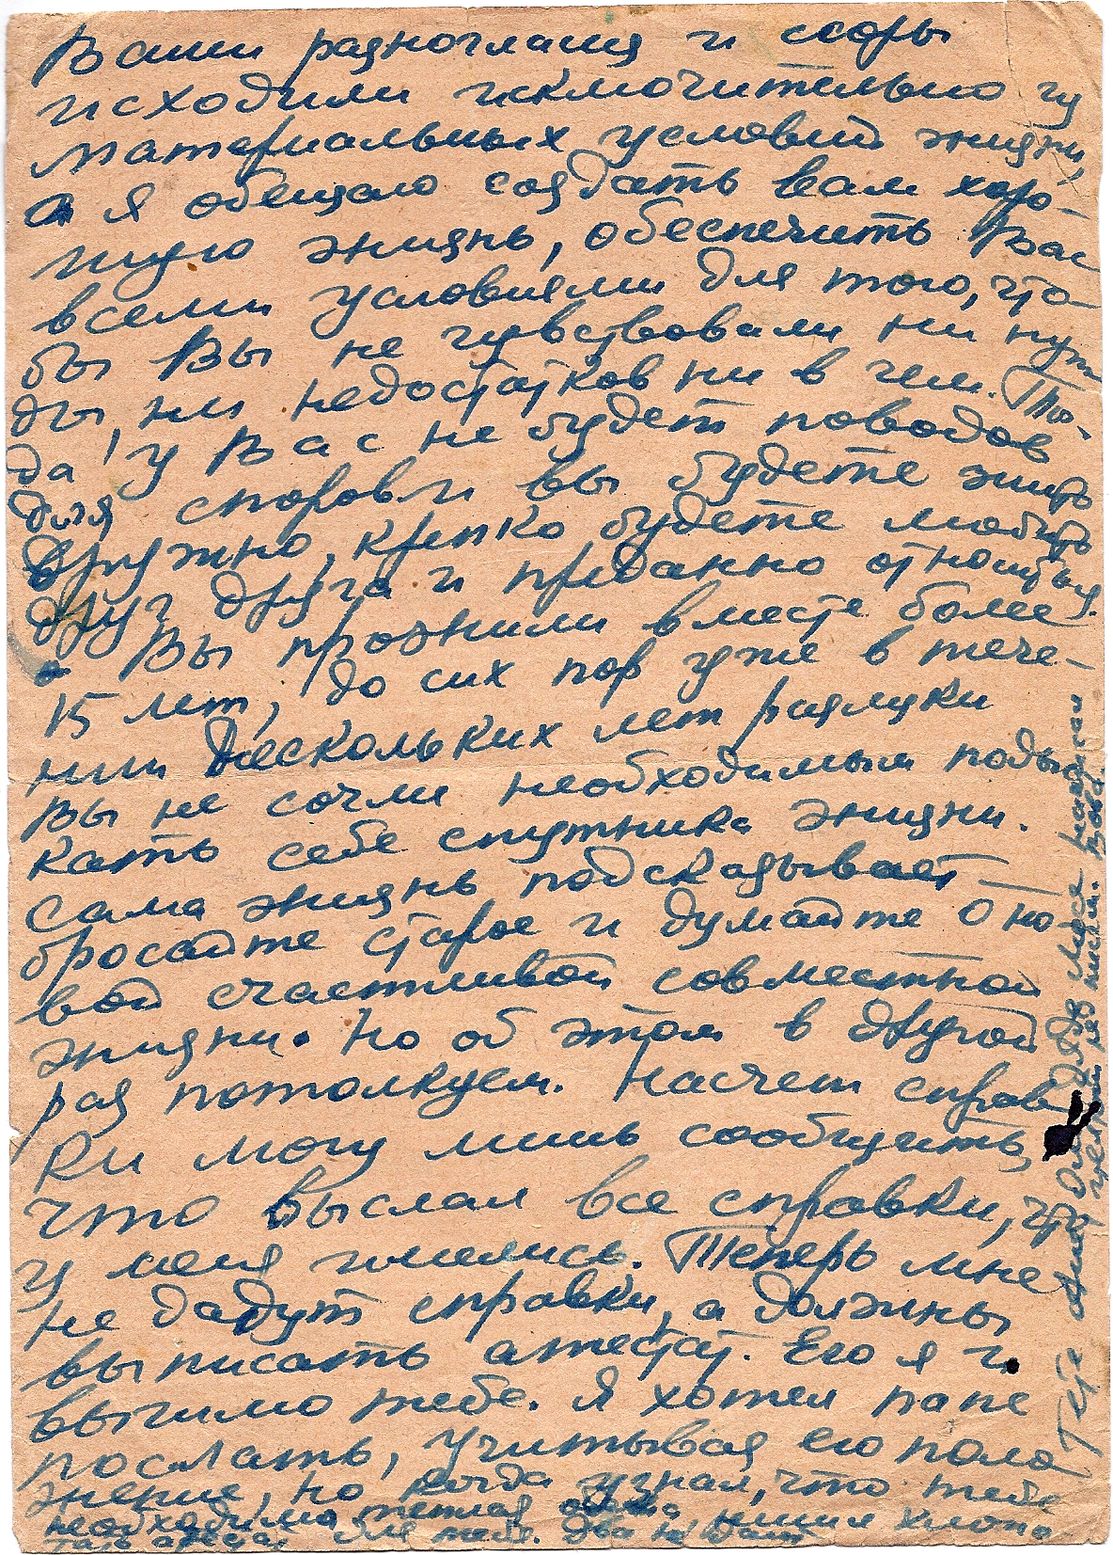 Ваши разногласия и ссоры
исходили исключительно из
материальных условий жизни,
а я обещаю создать вам хоро-
шую жизнь, обеспечить Вас
всеми условиями для того, что-
бы Вы не чувствовали ни нуж
ды, ни недостатков ни в чем. То-
да у Вас не будет поводов
для споров и вы будете жить
дружно, крепко будете любить
друг друга и преданно относиться.
Вы прожили вместе более
15 лет, до сих пор уже в тече-
нии нескольких лет разлуки
Вы не сочли необходимым поды
кать себе спутника жизни.
Сама жизнь подсказывает —
бросайте старое и думайте о но
вой счастливой совместной
жизни. Но об этом в другой
раз потолкуем. Насчет справ
ки могу лишь сообщить,
что выслал все справки, что
у меня имелись. Теперь мне
не дадут справки, а должны
выписать атестат. Его я и
вышлю тебе. Я хотел папе
послать, учитывая его поло
жение, но когда узнал, что тебе
необходима теплая начал хлопо
тать для тебе.
Тете дяде Люся написал
письма. Вова.